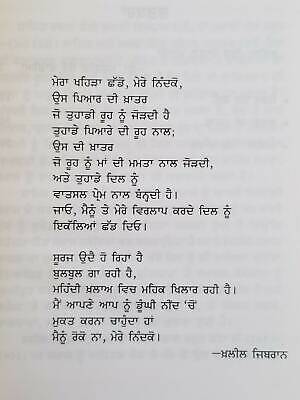 ਮੇਰਾ ਖਹਿੜਾ ਛੱਡੋ, ਮੇਰੇ ਨਿੰਦਕੋ,
ਉਸ ਪਿਆਰ ਦੀ ਖ਼ਾਤਰ
ਜੋ ਤੁਹਾਡੀ ਰੂਹ ਨੂੰ ਜੋੜਦੀ ਹੈ
ਤੁਹਾਡੇ ਪਿਆਰੇ ਦੀ ਰੂਹ ਨਾਲ;
ਉਸ ਦੀ ਖ਼ਾਤਰ
ਜੋ ਰੂਹ ਨੂੰ ਮਾਂ ਦੀ ਮਮਤਾ ਨਾਲ ਜੋੜਦੀ,
ਅਤੇ ਤੁਹਾਡੇ ਦਿਲ ਨੂੰ
ਵਾਤਸਲ ਪ੍ਰੇਮ ਨਾਲ ਬੰਨ੍ਹਦੀ ਹੈ।
ਜਾਓ, ਮੈਨੂੰ ਤੇ ਮੇਰੇ ਵਿਰਲਾਪ ਕਰਦੇ ਦਿਲ ਨੂੰ
ਇਕੱਲਿਆਂ ਛੱਡ ਦਿਓ।
ਸੂਰਜ ਉਦੈ ਹੋ ਰਿਹਾ ਹੈ
ਬੁਲਬੁਲ ਗਾ ਰਹੀ ਹੈ,
ਮਹਿੰਦੀ ਖ਼ਲਾਅ ਵਿਚ ਮਹਿਕ ਖਿਲਾਰ ਰਹੀ ਹੈ।
ਮੈਂ ਆਪਣੇ ਆਪ ਨੂੰ ਡੂੰਘੀ ਨੀਂਦ 'ਚੋਂ
ਮੁਕਤ ਕਰਨਾ ਚਾਹੁੰਦਾ ਹਾਂ
ਮੈਨੂੰ ਰੋਕੋ ਨਾ, ਮੇਰੇ ਨਿੰਦਕੋ।
—ਖ਼ਲੀਲ ਜਿਬਰਾਨ